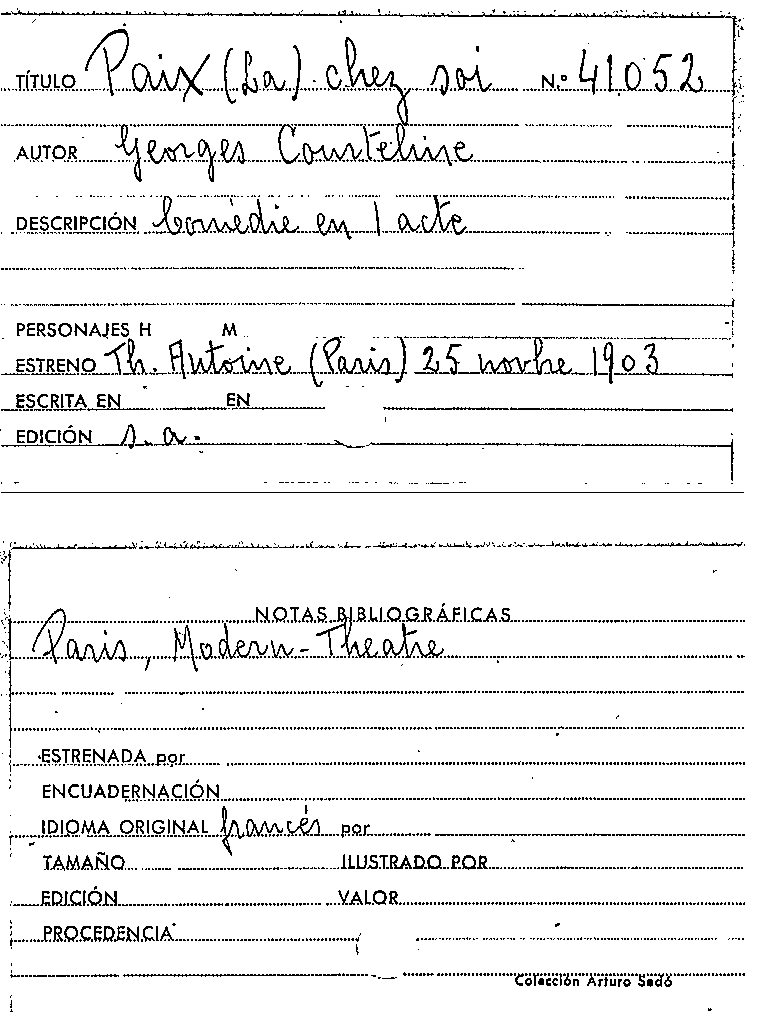 TÍTULO Paix (La) chez soi N.º 41052
AUTOR Georges Courteline
DESCRIPCIÓN Comédie en 1 acte
PERSONAJES H M
ESTRENO Th. Antoine (Paris) 25 novbre 1903
ESCRITA EN EN
EDICIÓN s. a.
NOTAS BIBLIOGRÁFICAS
Paris, Modern-Theatre
ESTRENADA por
ENCUADERNACIÓN
IDIOMA ORIGINAL francés por
TAMAÑO ILUSTRADO POR
EDICIÓN VALOR
PROCEDENCIA
Colección Arturo Sedó